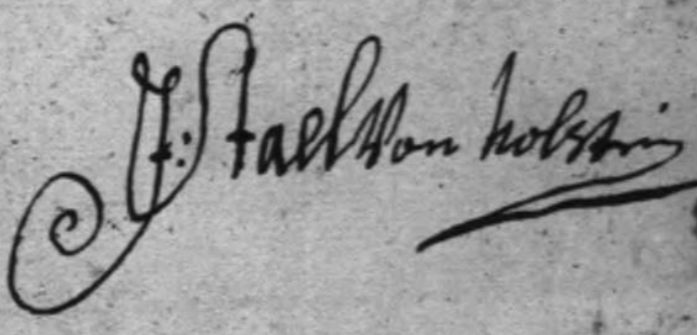 J: Stael Von holstein